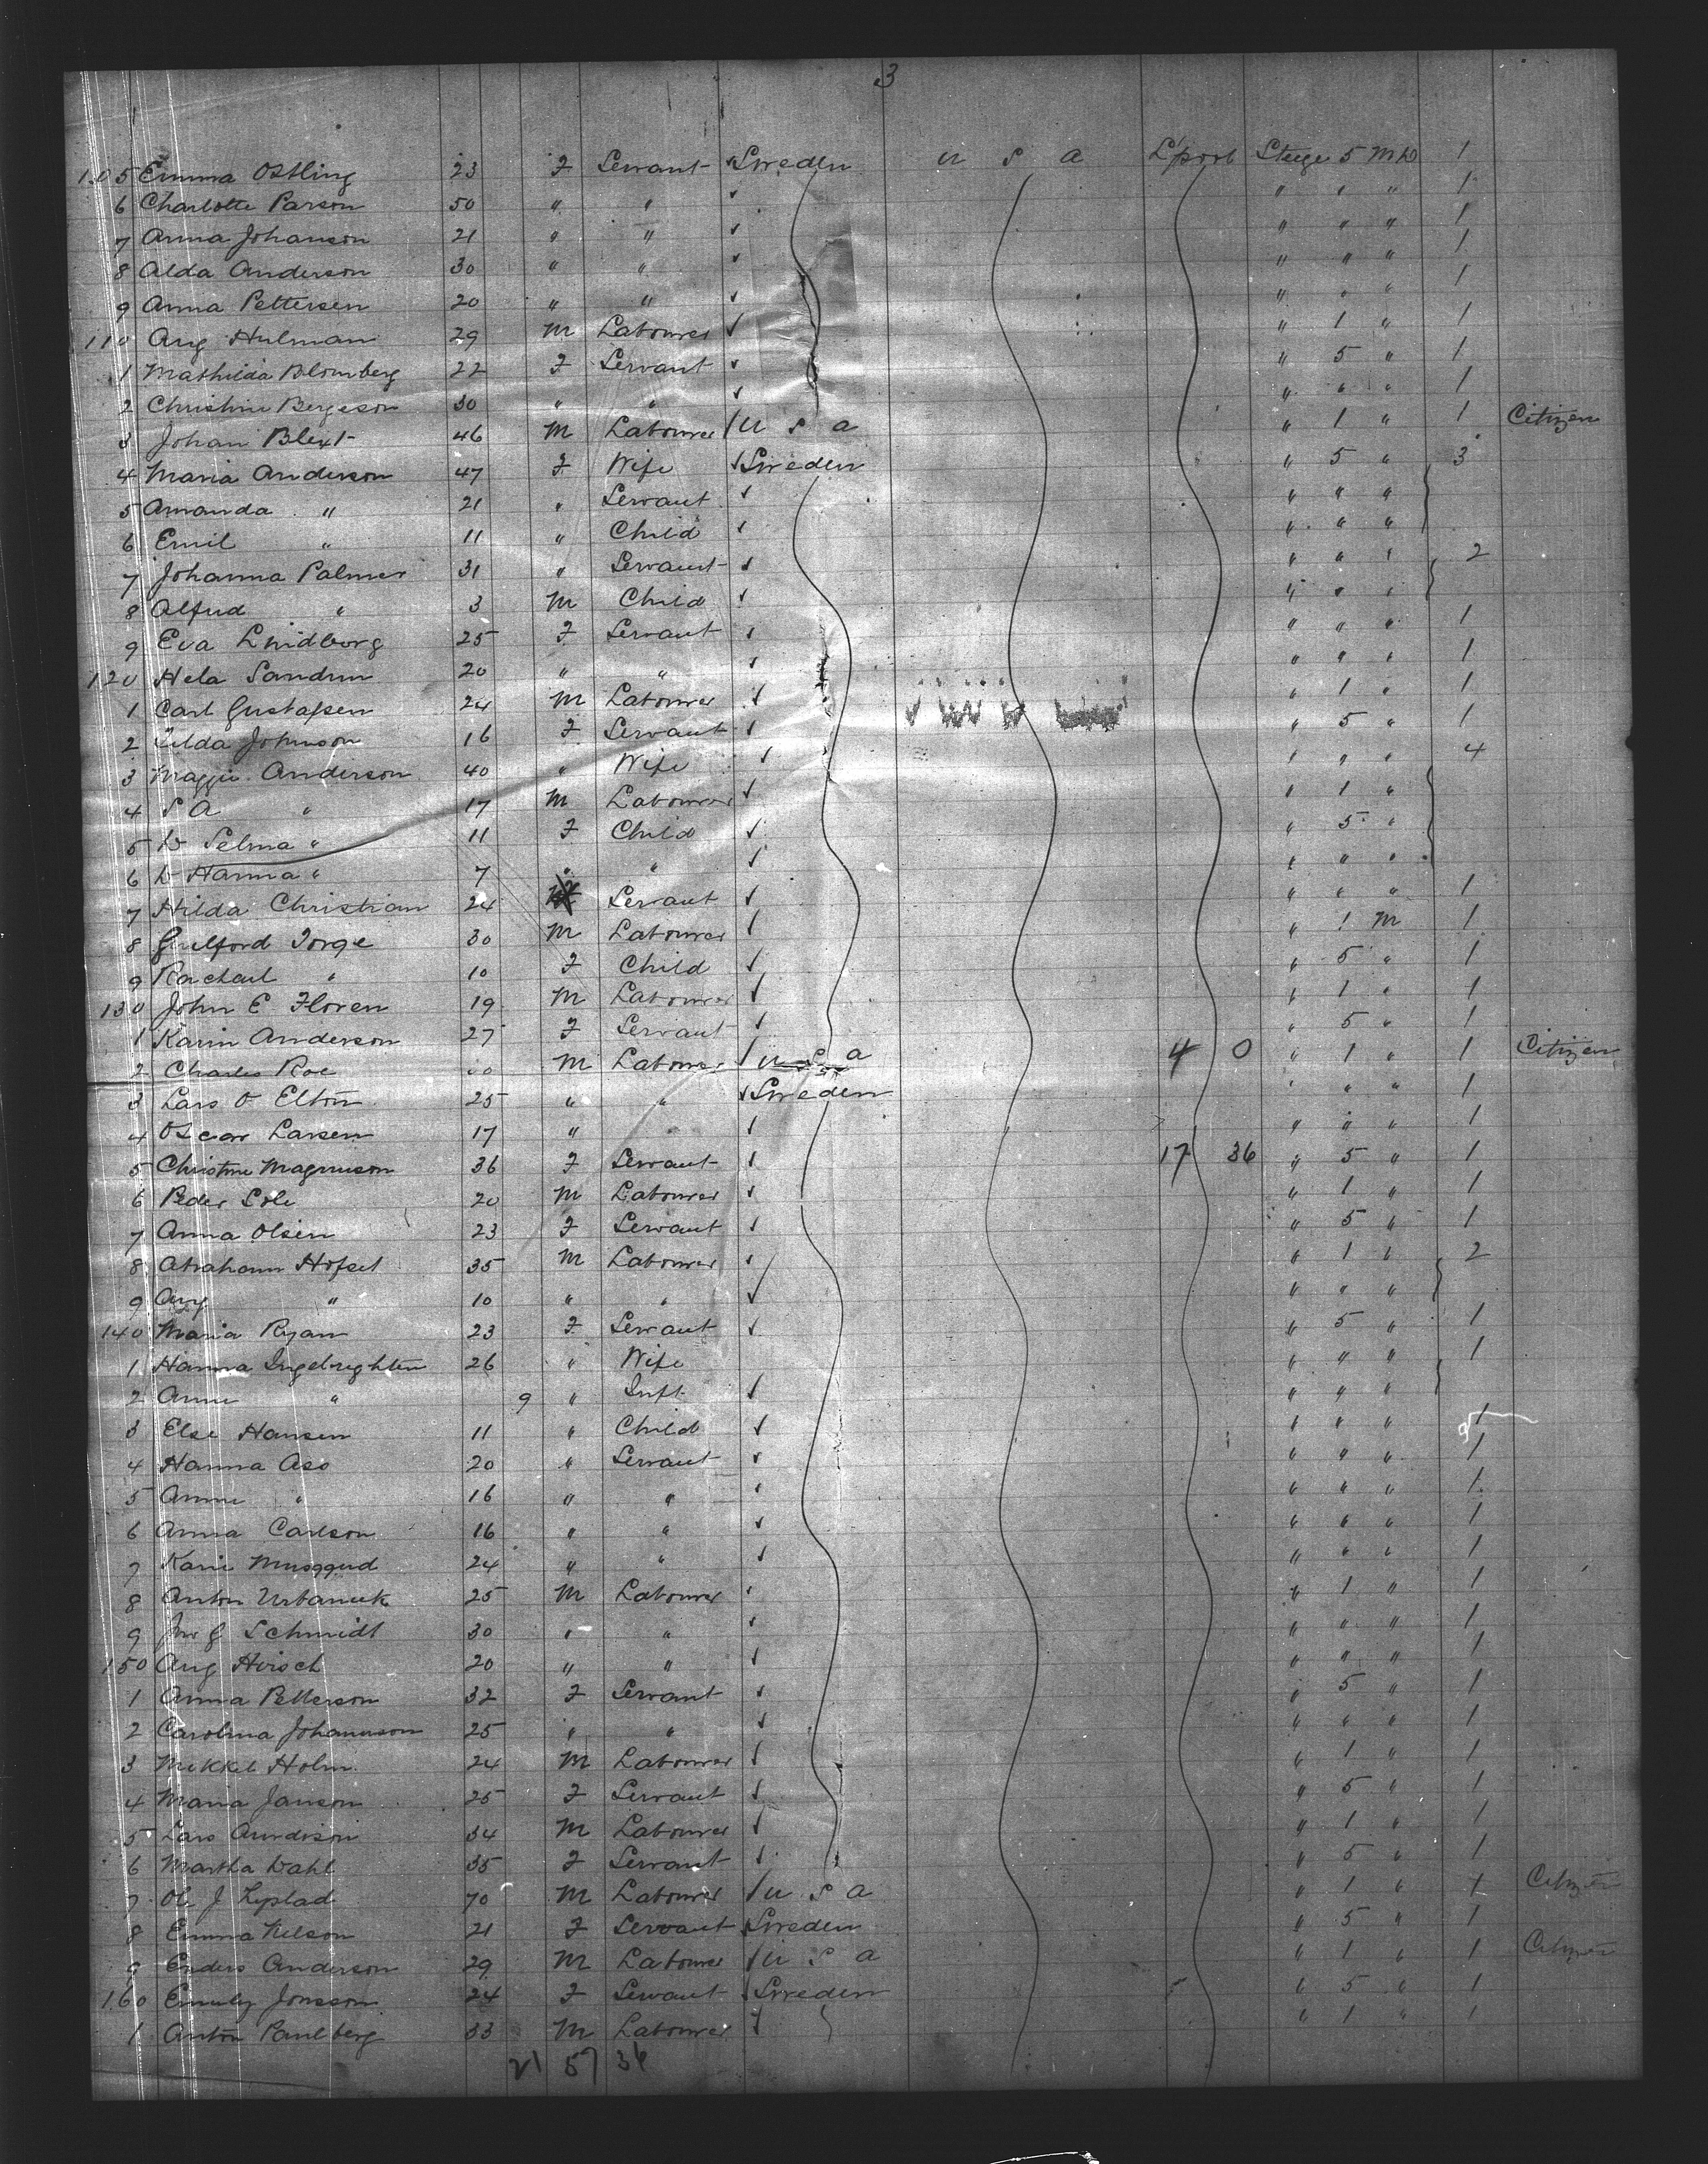 3
105 Emma Ostling 23 F Servant Sweden U S A L'pool Steege 5 M D 1
6 Charlotte Parson 50 " " ✓ " " " 1
7 Anna Johanson 21 " " ✓ " " " 1
8 Alda Anderson 30 " " ✓ " " " 1
9 Anna Pettersen 20 " " ✓ " " " 1
110 Aug Hulman 29 M Labourer ✓ " 1 " 1
1 Mathilda Blomberg 22 F Servant ✓ " 5 " 1
2 Christine Bergeson 30 " " ✓ " " " 1
3 Johan Blext 46 M Labourer / U S A " 1 " 1 Citizen
4 Maria Anderson 47 F Wife ✓ Sweden " 5 " 3
5 Amanda " 21 " Servant ✓ " " "
6 Emil " 11 " Child ✓ " " "
7 Johanna Palmer 31 " Servant ✓ " " " 2
8 Alfred " 3 M Child ✓ " " "
9 Eva Lindborg 25 F Servant ✓ " " " 1
120 Hela Sandrin 20 " " ✓ " " " 1
1 Carl Gustafsen 24 M Labourer ✓ " 1 " 1
2 Tilda Johnson 16 F Servant ✓ " 5 " 1
3 Maggie Anderson 40 " Wife ✓ " " " 4
4 S A " 17 M Labourer ✓ " 1 "
5 D Selma " 11 F Child ✓ " 5 "
6 D Hanna " 7 " " ✓ " " "
7 Hilda Christian 24 F Servant ✓ " " " 1
8 Guilford Torge 30 M Labourer ✓ " 1 M 1
9 Rachael " 10 F Child ✓ " 5 " 1
130 John E Floren 19 M Labourer ✓ " 1 " 1
1 Karin Anderson 27 F Servant ✓ " 5 " 1
2 Charles Roe M Labourer / U S A 4 0 " 1 " 1 Citizen
3 Lars O Elton 25 " " ✓ Sweden " " " 1
4 Oscar Larsen 17 " " ✓ " " " 1
5 Christine Magnuson 36 F Servant ✓ 17 36 " 5 " 1
6 Peder Sole 20 M Labourer ✓ " 1 " 1
7 Anna Olsen 23 F Servant ✓ " 5 " 1
8 Abraham Hofset 35 M Labourer ✓ " 1 " 2
9 Aug " 10 " " ✓ " " "
140 Maria Ryan 23 F Servant ✓ " 5 " 1
1 Hanna Ingebrighten 26 " Wife " " " 1
2 Anne " 9 " Inft ✓ " " "
3 Else Hansen 11 " Child ✓ " " " 1
4 Hanna Aso 20 " Servant ✓ " " " 1
5 Anne " 16 " " ✓ " " " 1
6 Anna Carlson 16 " " ✓ " " " 1
7 Karie Musggud 24 " " ✓ " " " 1
8 Anton Urbanek 25 M Labourer ✓ " 1 " 1
9 Jno G Schmidt 30 " " ✓ " " " 1
150 Aug Hirsch 20 " " ✓ " " " 1
1 Anna Petterson 32 F Servant ✓ " 5 " 1
2 Carolina Johannson 25 " " ✓ " " " 1
3 Mikkel Holm 24 M Labourer ✓ " 1 " 1
4 Maria Janson 25 F Servant ✓ " 5 " 1
5 Lars Anderson 34 M Labourer ✓ " 1 " 1
6 Martha Dahl 35 F Servant ✓ " 5 " 1
7 Ole J Lystad 70 M Labourer / U S A " 1 " 1 Citizen
8 Emma Nelson 21 F Servant Sweden " 5 " 1
9 Enders Anderson 29 M Labourer / U S A " 1 " 1 Citizen
160 Emuly Jonsson 24 F Servant Sweden " 5 " 1
1 Anton Paulberg 33 M Labourer ✓ " 1 " 1
21 57 36